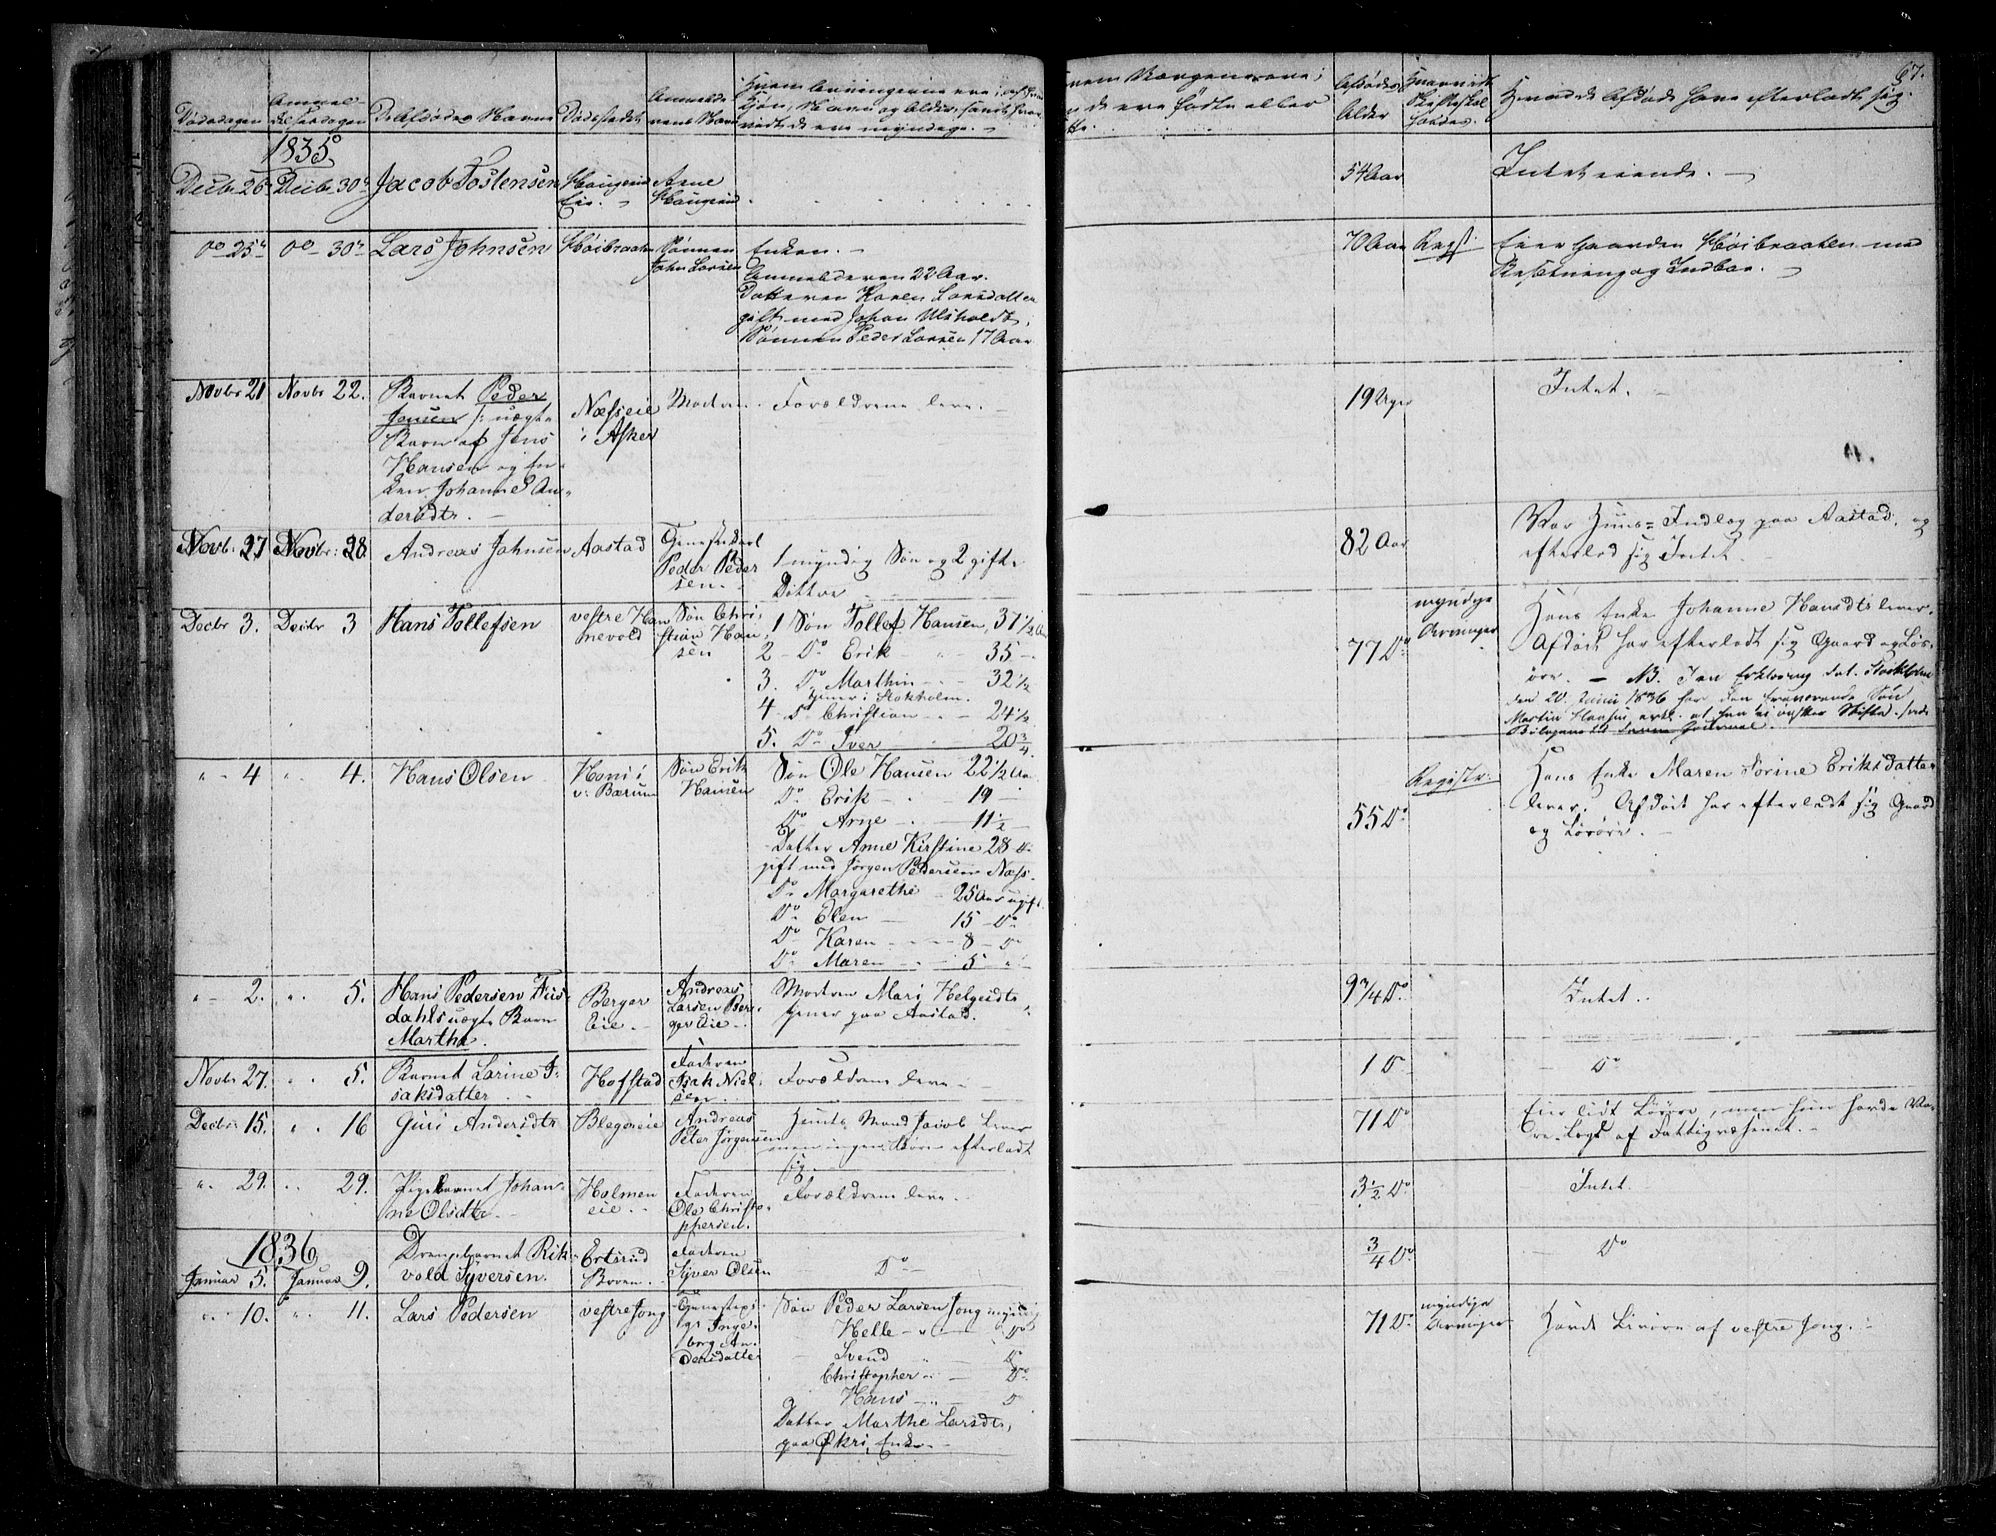 67.
Dödsdagen
Anmel-
delsesdagen
De Afdödes Navne
Dödsstedet
Anmelde
rens Navn
Hvem Arvingerne ere, deres
Kjön, Navn og Alder, samt hvor
vidt de ere myndige. -
Hvem Værgerne ere;
de ere födte eller
Afdödes
Alder
Hvorvidt
Skifte skal
holdes.
Hvad de Afdöde have efterladt sig.
1835
Decbr 26 Decbr 30 Jacob Tostensen Haugerud
Eie. -
Arne
Haugerud
54 Aar
Intet eiende. -
do 25 do 30 Lars Johnsen Höibraaten Sönnen
John Larsen
Enken. -
Anmelderen 22 Aar.
Datteren Karen Larsdatter
gift med Johan Ulsholdt,
Sönnen Peder Larsen 17 Aar
70 Aar Regst
Eier Gaarden Höibraaten med
Besetning og Indboe. -
Novbr 21 Novbr 22. Barnet Peder
Jensen /: uægte
Barn af Jens
Hansen og En-
ken Johanne An-
dersdtr. -
Næsseie
i Asker
Moderen. Forældrene leve. -
19 Uger
Intet.
Novb: 27 Novbr: 28 Andreas Johnsen Aastad
Tjenestekarl
Peder Peder
sen. -
1 myndig Sön og 2 gifte
Döttre
82 Aar
Var Huus-Indlog paa Aastad, og
efterlod sig Intet.
Decbr 3. Decbr 3 Hans Tollefsen
vestre Ham
nevold
Sön Chri-
stian Han
sen
1 Sön Tollef Hansen, 37 1/2 Aar
2 - Do Erik - 35 -
3. Do Marthin - 32 1/2
tjener i Stokholm.
4 - Do Christian - 24 1/2
5. Do Iver 20 3/4
77 Do
myndige
Arvinger
Hans Enke Johanne Hansdtr lever.
Afdöde har efterladt sig Gaard og Lös-
öre. - NB. I en Erklæring dat. Stockholm
den 20 Junii 1836 har den fraværende Sön
Martin Hansen erkl. at han ei önsker Skifte.
" - 4 " - 4. Hans Olsen
Honi i
v: Bærum
Sön Erik
Hansen
Sön Ole Hansen 22 1/2 Aar
Do Erik - 19 -
Do Arne - 11 1/2 -
Datter Anne Kirstine 28 Do
gift med Jörgen Pedersen Næss.
Do Margarethe - 25 Aar ugift
Do Elen 15 - Do
Do Karen - 8 - Do
Do Maren - 5 "
55 Do
Registr:
Hans Enke Maren Sorine Eriksdatter
lever. Afdöde har efterladt sig Gaard
og Lösöre. -
" - 2. " . 5. Hans Pedersen Fus-
dahls uægte Barn
Marthe.
Berger
Eie. -
Andreas
Larsen Ber-
ger Eie -
Moderen Mari Helgesdtr,
tjener paa Aastad.
9 3/4 Do
Intet.
Novbr 27. " . 5. Barnet Larine I-
saksdatter
Hofstad
Faderen
Isak Niel-
sen
Forældrene leve -
1 Do
Do
Decbr 15. " . 16 Guri Andersdtr Blegeseie
Andreas
Peter Jörgensen
Hendes Mand Jacob lever
men ingen Börn efterladt
sig.
71 Do
Eier lidt Lösöre, men hun havde Va-
re Lagt af Fattigvæsenet. -
" . 29. " . 29. Pigebarnet Johan-
ne Olsdtr. -
Holmen
eie. -
Faderen
Ole Christo-
phersen.
Forældrene leve. -
3 1/2 Do
Intet.
1836
Januar 5. Januar 9. Drengebarnet Rik-
vold Syversen.
Ertsrud
Faderen
Syver Olsen
Do
3/4 Do
Do
" . 10. " . 11. Lars Pedersen vestre Jong
Tjenestepi-
ge Inge-
borg An-
dersdatter
Sön Peder Larsen Jong myndig
Helle - " Do
Svend " - Do
Christopher " - Do
Hans - " - Do
Datter Marthe Larsdtr,
paa Økri, Enke -
71 Do
myndige
Arvinger
Havde Livöre af vestre Jong. -